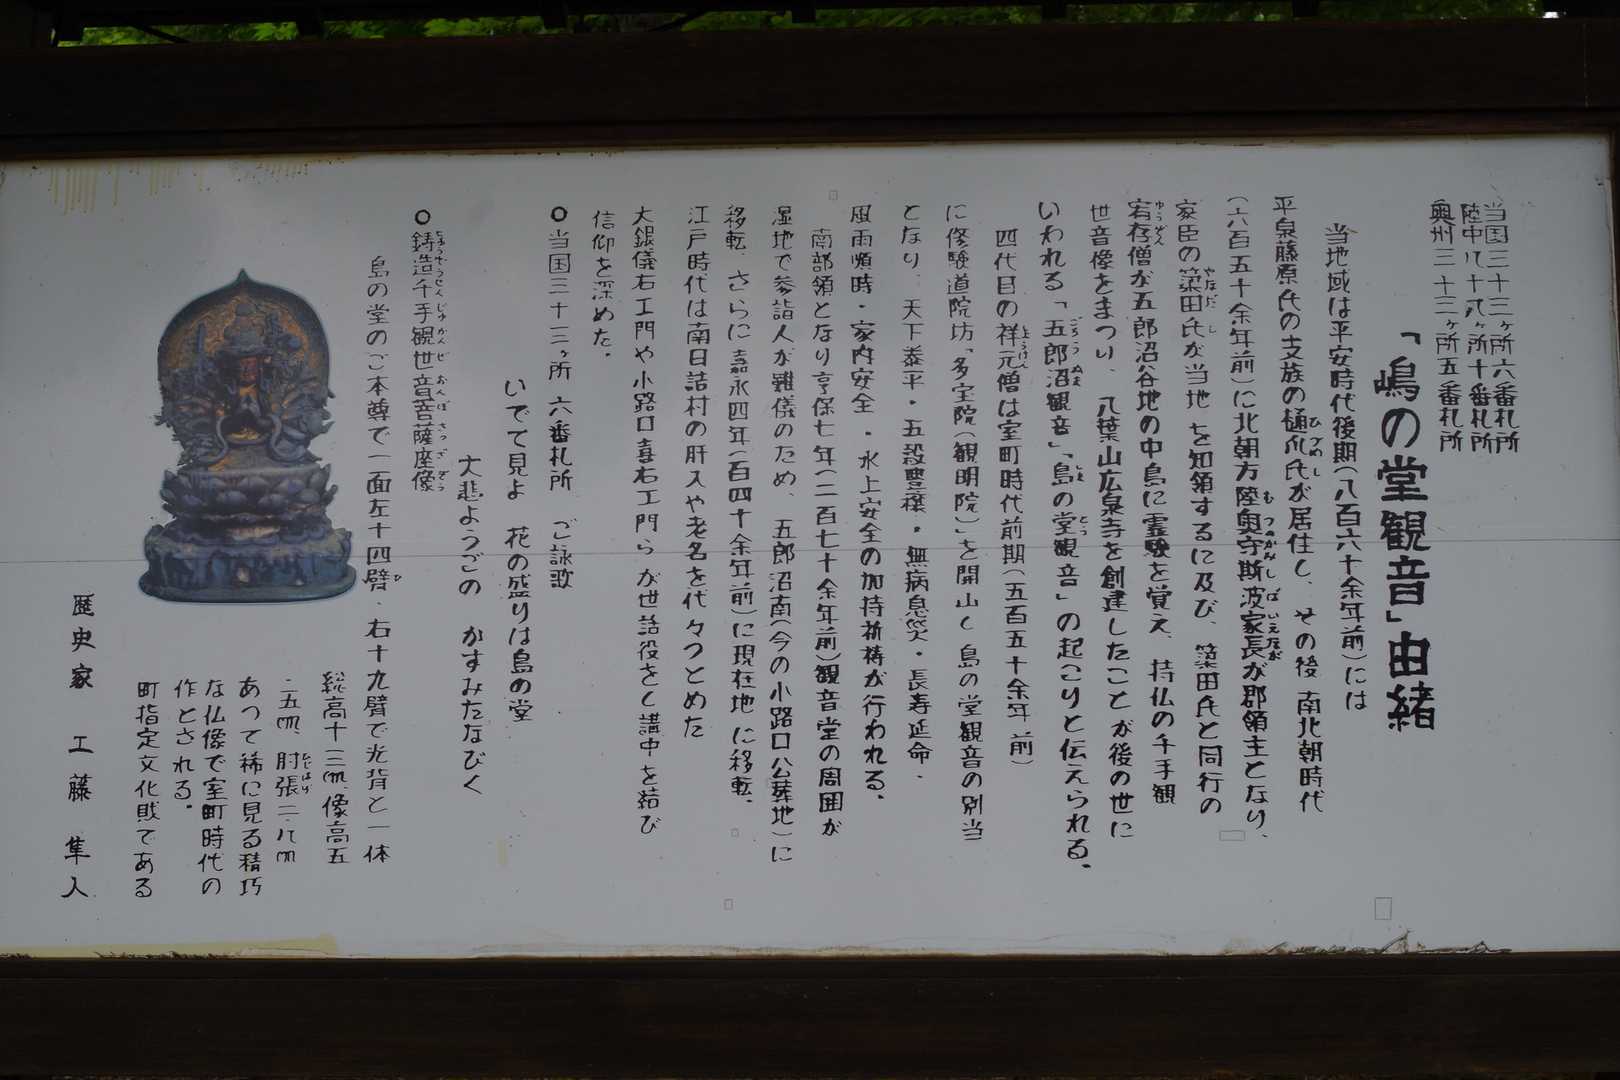 当国三十三ヶ所六番札所
陸中八十八ヶ所十番札所
奥州三十三ヶ所五番札所
「嶋の堂観音」由緒
当地域は平安時代後期（八百六十余年前）には
平泉藤原氏の支族の樋爪氏が居住し、その後 南北朝時代
（六百五十余年前）に北朝方陸奥守斯波家長が郡領主となり、
家臣の簗田氏が当地を知領するに及び、簗田氏と同行の
宥存僧が五郎沼谷地の中島に霊験を覚え、持仏の千手観
世音像をまつり、八葉山広泉寺を創建したことが後の世に
いわれる「五郎沼観音」「島の堂観音」の起こりと伝えられる。
四代目の祥元僧は室町時代前期（五百五十余年前）
に修験道院坊「多宝院（観明院）」を開山し島の堂観音の別当
となり、天下泰平・五穀豊穣・無病息災・長寿延命、
風雨順時・家内安全・水上安全の加持祈祷が行われる。
南部領となり享保七年（二百七十余年前）観音堂の周囲が
湿地で参詣人が難儀のため、五郎沼南（今の小路口公葬地）に
移転、さらに嘉永四年（百四十余年前）に現在地に移転。
江戸時代は南日詰村の肝入や老名を代々つとめた
大銀儀右エ門や小路口喜右エ門らが世話役をし講中を結び
信仰を深めた。
○当国三十三ヶ所 六番札所 ご詠歌
いでて見よ 花の盛りは島の堂
大悲ようごの かすみたなびく
○鋳造千手観世音菩薩座像
島の堂のご本尊で一面左十四臂、右十九臂で光背と一体
総高十三㎝、像高五
・五㎝、肘張二・八㎝
あって稀に見る精巧
な仏像で室町時代の
作とされる。
町指定文化財である
歴史家 工藤 隼人